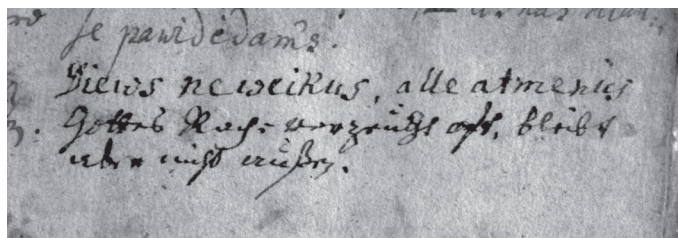 se pawidėdams.
Diews ne weikus, alle atmenus
Gottes Rache verzeucht oft, bleibt
aber nicht außen.